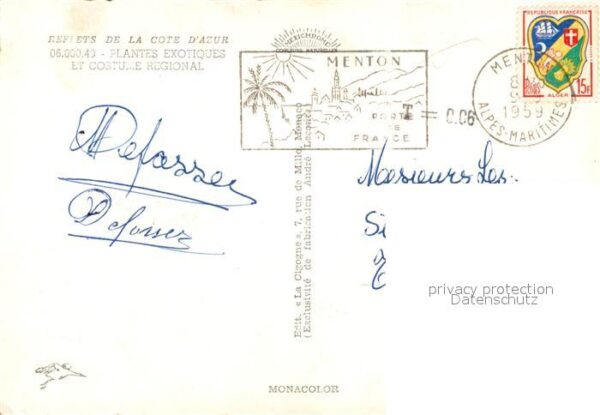 REFLETS DE LA COTE D'AZUR
06.000.40 - PLANTES EXOTIQUES
ET COSTUME REGIONAL
MENTON
PORTE
DE
FRANCE
T = 0.06
REPUBLIQUE FRANÇAISE
POSTES
15F
ALGER
MENTON
1959
ALPES-MARITIMES
Delosser
Messieurs Les
Si
Edit. «La Cigogne», 7, rue de Millo, Monaco
(Exclusivité de fabrication André Leconte)
privacy protection
Datenschutz
MONACOLOR